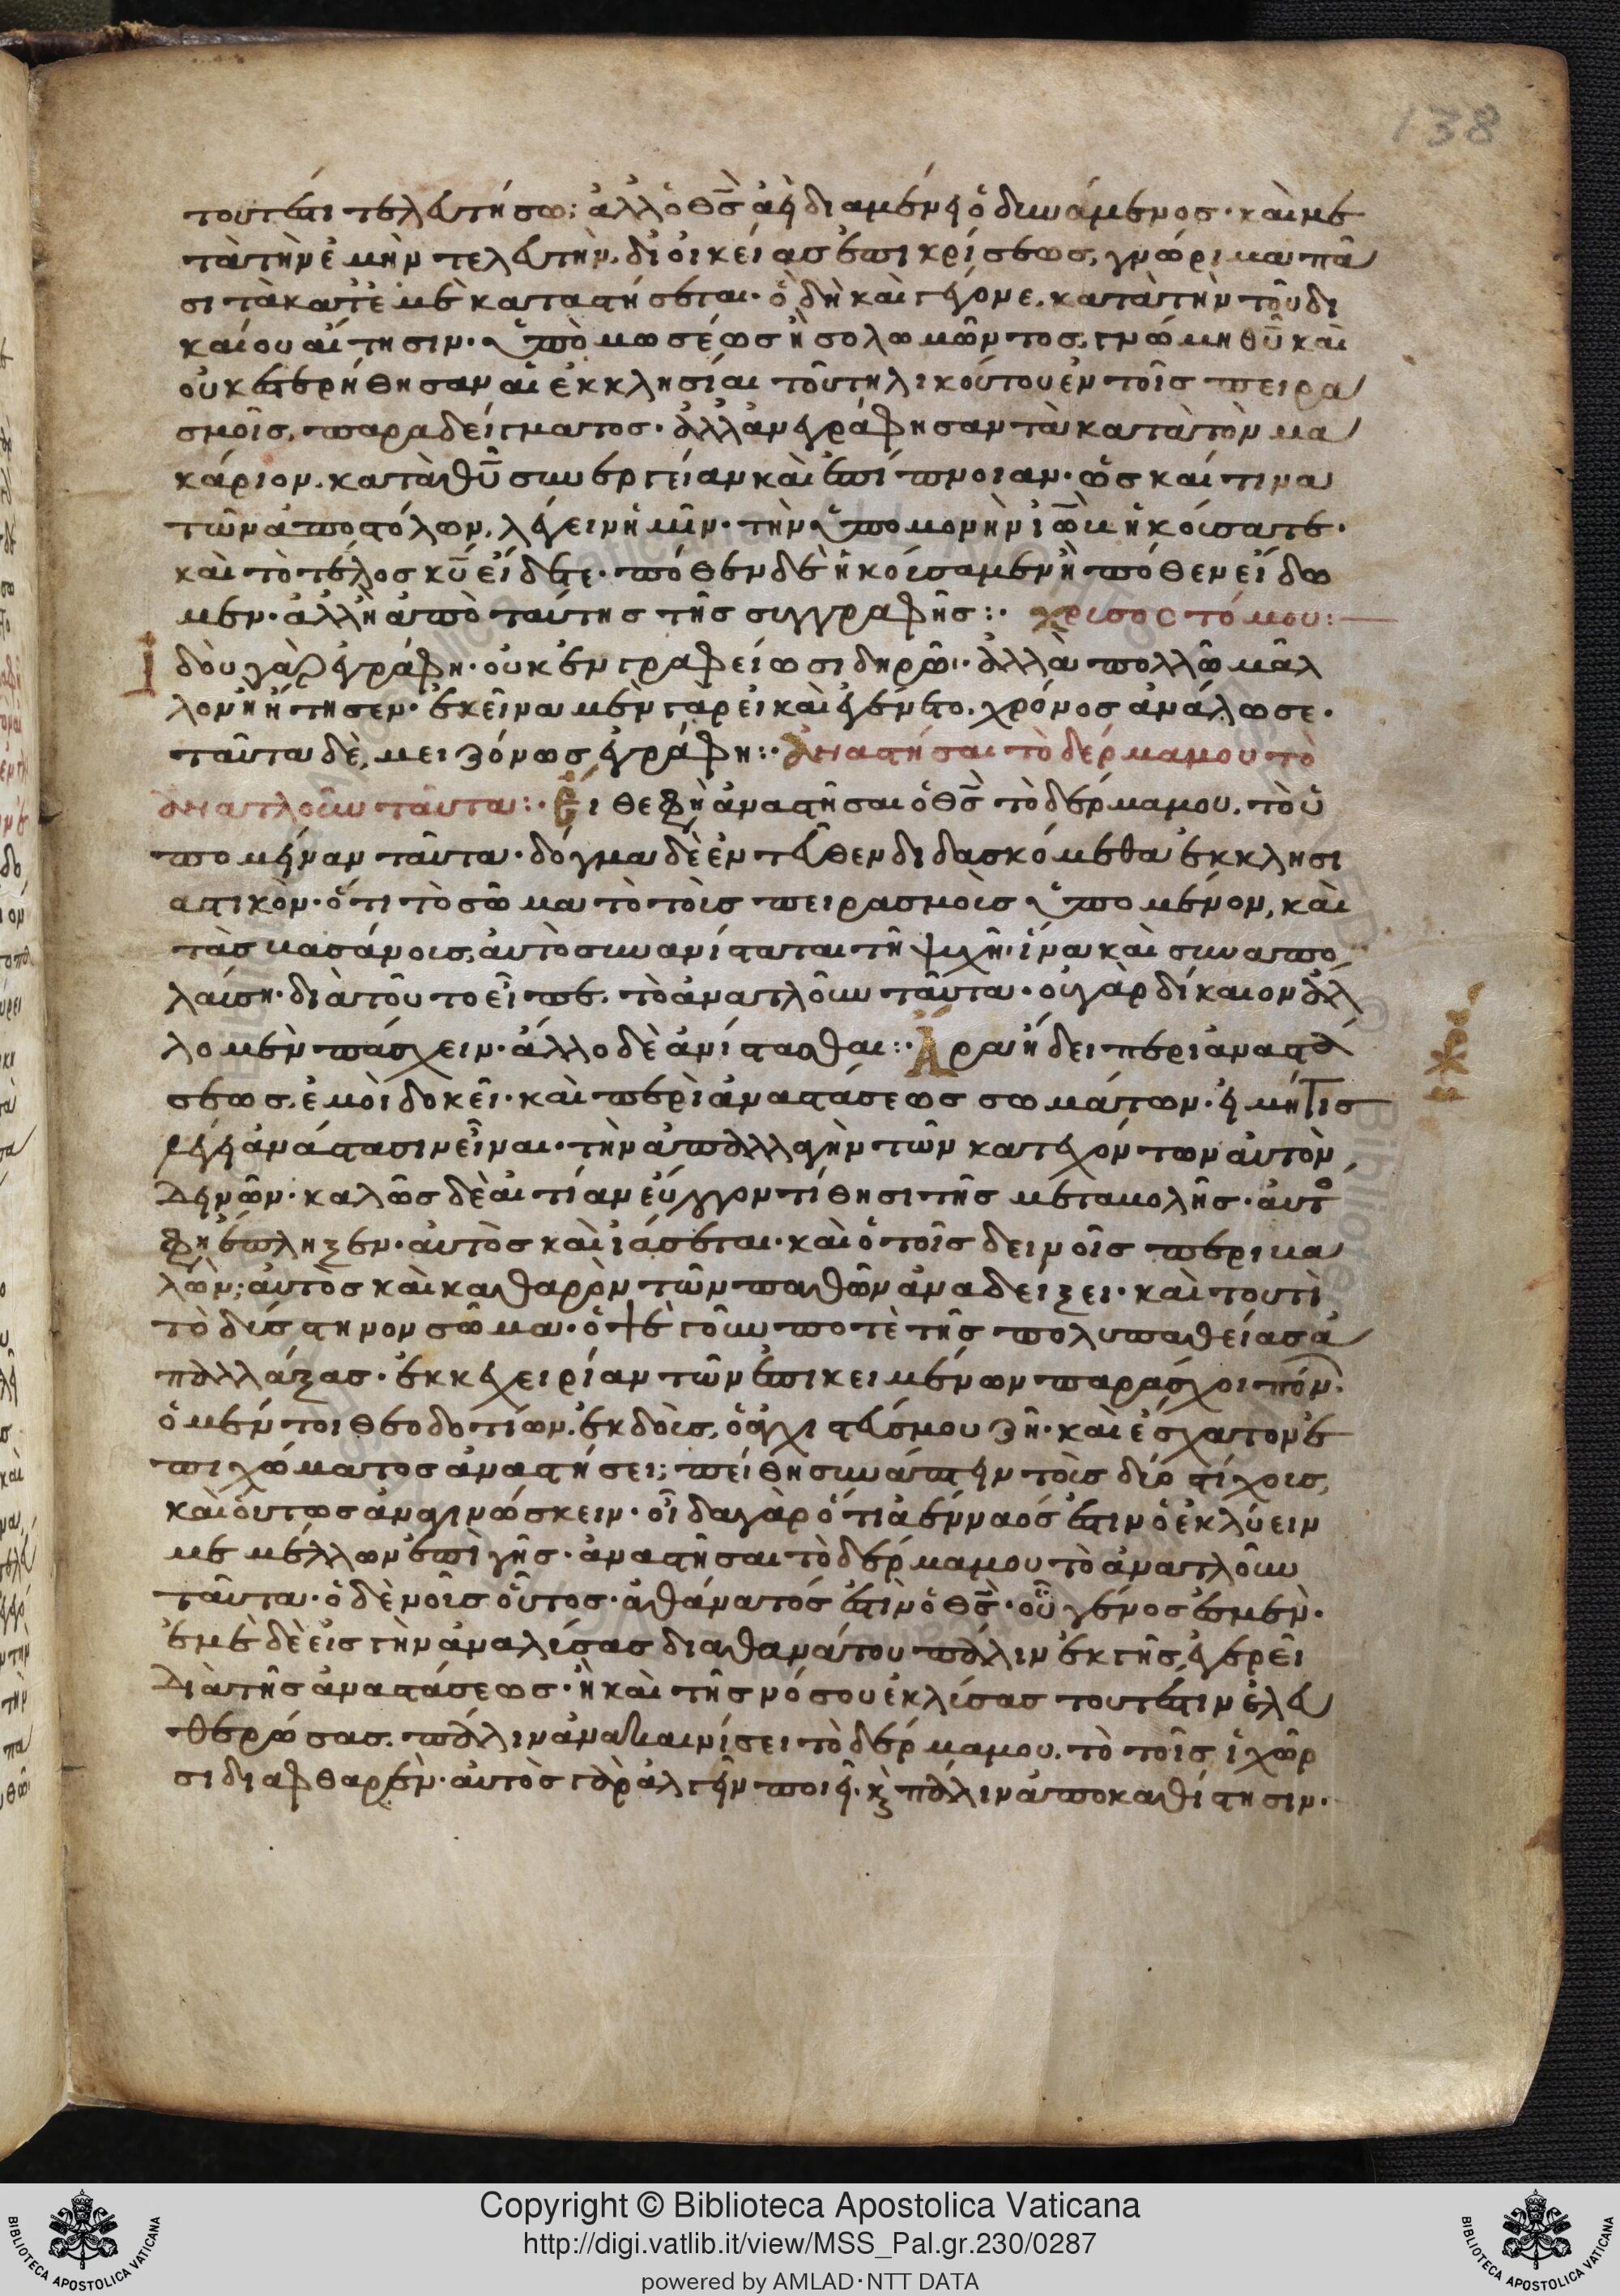 138
τουτέστι τελευτήσω; ἀλλ' ὁ θ̅ς̅ ἀεὶ διαμένει ὁ δυνάμενος· καὶ με
τὰ τὴν ἐμὴν τελευτὴν, δι' οἰκείας ἐπικρίσεως, γνώριμα πᾶ
σι τὰ κατ' ἐμὲ καταστήσεται· ὃ δὴ καὶ γέγονε, κατὰ τὴν τοῦ δι
καίου αἴτησιν· ὑπὸ μωσέως ἢ σολομῶντος, γνώμη θ̅υ̅ καὶ
οὐκ ἐστερήθησαν αἱ ἐκκλησίαι τοῦ τηλικούτου ἐν τοῖς πειρα
σμοῖς, παραδείγματος· ἀλλ' ἀνεγράφησαν τὰ κατὰ τὸν μα
κάριον, κατὰ θ̅υ̅ συνεργείαν καὶ ἐπίπνοιαν· ὥς καί τινα
τῶν ἀποστόλων, λέγειν ἡμῖν· τὴν ὑπομονὴν ἰὼβ ἠκούσατε·
καὶ τὸ τέλος κ̅υ̅ εἴδετε· πόθεν δὲ ἠκούσαμεν ἢ πόθεν εἴδω
μεν· ἀλλ' ἢ ἀπὸ ταύτης τῆς συγγραφῆς:· χρυσοστόμου:
Ἰδοὺ γὰρ ἐγράφη· οὐκ ἐν γραφείω σιδηρῶ· ἀλλὰ πολλῶ μᾶλ
λον ἢ ἤτησεν· ἐκεῖνα μὲν γὰρ εἰ καὶ ἐγένετο, χρόνος ἀνάλωσε·
ταῦτα δὲ, μειζόνως ἐγράφη:· ἀναστῆσαι τὸ δέρμα μου τὸ
ἀνατλοῦν ταῦτα:· Εἴθε φη ἀναστῆσαι ὁ θ̅ς̅ τὸ δέρμα μου, τὸ ὑ
πομεῖναν ταῦτα· δόγμα δὲ ἐντεῦθεν διδασκόμεθα ἐκκλησι
αστικὸν· ὅτι τὸ σῶμα τὸ τοῖς πειρασμοῖς ὑπομένον, καὶ
τὰς βασάνοις, αὐτὸ συνανίσταται τῆ ψυχῆ· ἵνα καὶ συναπο
λαύση· διὰ τοῦτο εἶπε, τὸ ἀνατλοῦν ταῦτα· οὐ γὰρ δίκαιον ἄλ
λο μὲν πάσχειν· ἄλλο δὲ ἀνίστασθαι:· Ἆρα ἤδει περὶ ἀναστά
σεως, ἐμοὶ δοκεῖ· καὶ περὶ ἀναστάσεως σωμάτων· εἰ μή τις
λέγει ἀνάστασιν εἶναι· τὴν ἀπαλλαγὴν τῶν κατεχόντων αὐτὸν
δεινῶν· καλῶς δὲ αἰτίαν εὔλογον τίθησι τῆς μεταβολῆς· αὐτὸ
φη ἔπληξεν· αὐτὸς καὶ ἰάσεται· καὶ ὁ τοῖς δεινοῖς περιβα
λὼν; αὐτὸς καὶ καθαρὸν τῶν παθῶν ἀναδείξει· καὶ τουτὶ
τὸ δύστηνον σῶμα· ὀψὲ γοῦν ποτὲ τῆς πολυπαθείας ἀ
παλλάξας· ἐκκεχειρίαν τῶν ἐπικειμένων παράσχοι πόν·
ὁ μέντοι θεοδοτίων, ἐκδοὺς, ὁ ἀγχιστεύς μου ζῆ· καὶ ἔσχατον ἐ
πὶ χώματος ἀναστήσει; πείθη συνάπτειν τοῖς δύο στίχοις,
καὶ οὕτως ἀναγινώσκειν· οἶδα γὰρ ὅτι ἀένναός ἐστιν ὁ ἐκλύειν
με μέλλων ἐπὶ γῆς· ἀναστῆσαι τὸ δέρμα μου τὸ ἀνατλοῦν
ταῦτα· ὁ δὲ νοῦς οὗτος· ἀθάνατός ἐστὶν ὁ θ̅ς̅· οὗ γένος ἐσμὲν·
ἐμὲ δὲ εἰς γὴν ἀναλύσας διὰ θανάτου πάλιν ἐκ γῆς ἐγερεῖ
διὰ τῆς ἀναστάσεως· ἢ καὶ τῆς νόσου ἐκλύσας τουτέστιν ἐλευ
θερώσας, πάλιν ἀνακαινίσει τὸ δέρμα μου, τὸ τοῖς ἰχῶρ
σι διαφθαρὲν· αὐτὸς γὰρ ἀλγεῖν ποιεῖ, κ πάλιν ἀποκαθίστησιν·
Copyright © Biblioteca Apostolica Vaticana
http://digi.vatlib.it/view/MSS_Pal.gr.230/0287
powered by AMLAD·NTT DATA
BIBLIOTECA APOSTOLICA VATICANA
BIBLIOTECA APOSTOLICA VATICANA